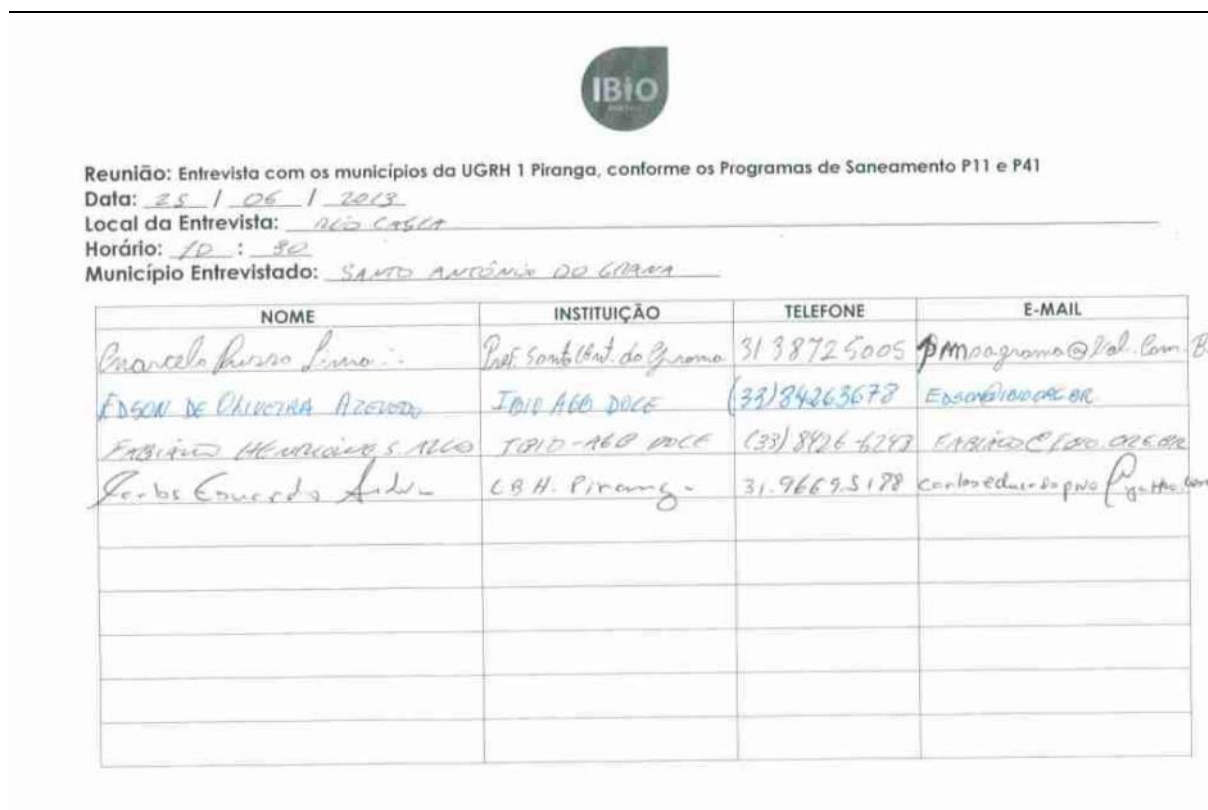 IBiO
Reunião: Entrevista com os municípios da UGRH 1 Piranga, conforme os Programas de Saneamento P11 e P41
Data: 25 / 06 / 2013
Local da Entrevista: RIO CASCA
Horário: 10 : 30
Município Entrevistado: SANTO ANTÔNIO DO GRAMA
NOME INSTITUIÇÃO TELEFONE E-MAIL
Marcelo Lima Pref. Sant. Ant. do Grama 31 38725005
EDSON DE OLIVEIRA AZEVEDO IBIO AGB DOCE (33)84263678 EDSON@IBIO.ORG.BR
FABIANO HENRIQUE S. IBIO-AGB DOCE (33) 8426-6247 FABIANO@IBIO.ORG.BR
Carlos Eduardo CBH. Piranga 31.96695188